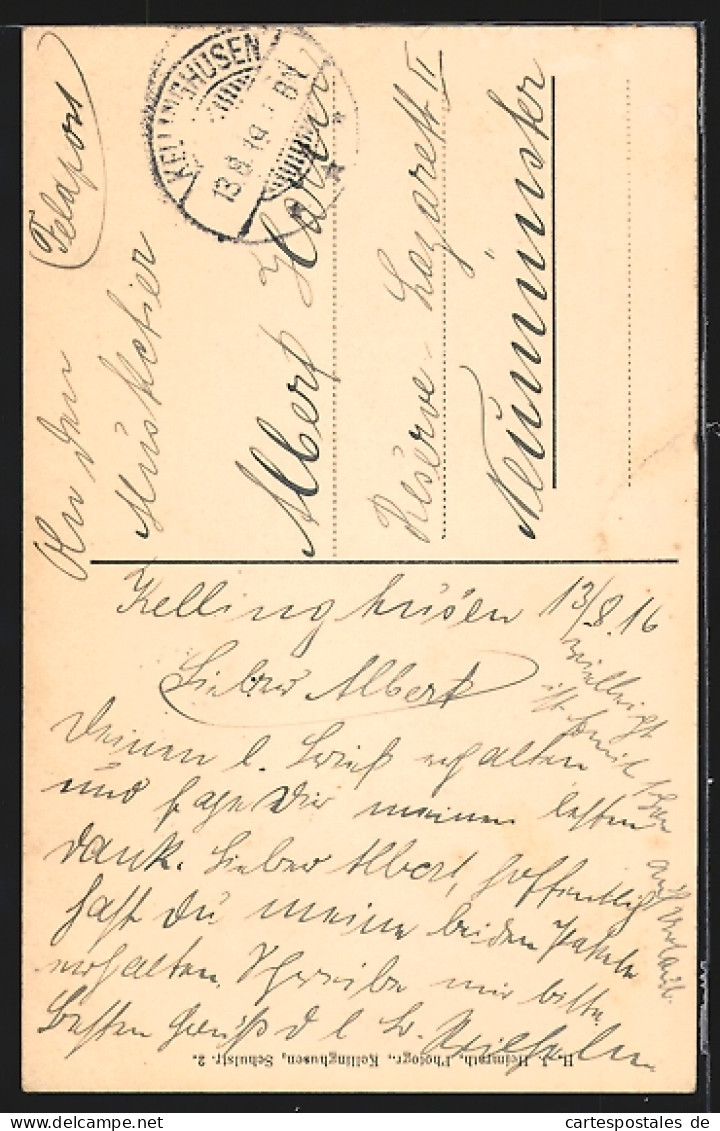 Feldpost
KELLINGHUSEN
13.8.16
An den
Musketier
Albert
Reserve-Lazarett II
Neumünster
Kellinghusen 13/8.16
Lieber Albert
Deinen l. Brief erhalten
und sage Dir meinen besten
Dank. Lieber Albert, hoffentlich
hast Du meine beiden Pakete
erhalten. Schreibe mir bitte.
Besten Gruß d l Br. Wilhelm
Vielleicht
ist
auf Urlaub.
H. J. Heimrath, Photogr., Kellinghusen, Schulstr. 2.
© cartespostales.de
cartespostales.de